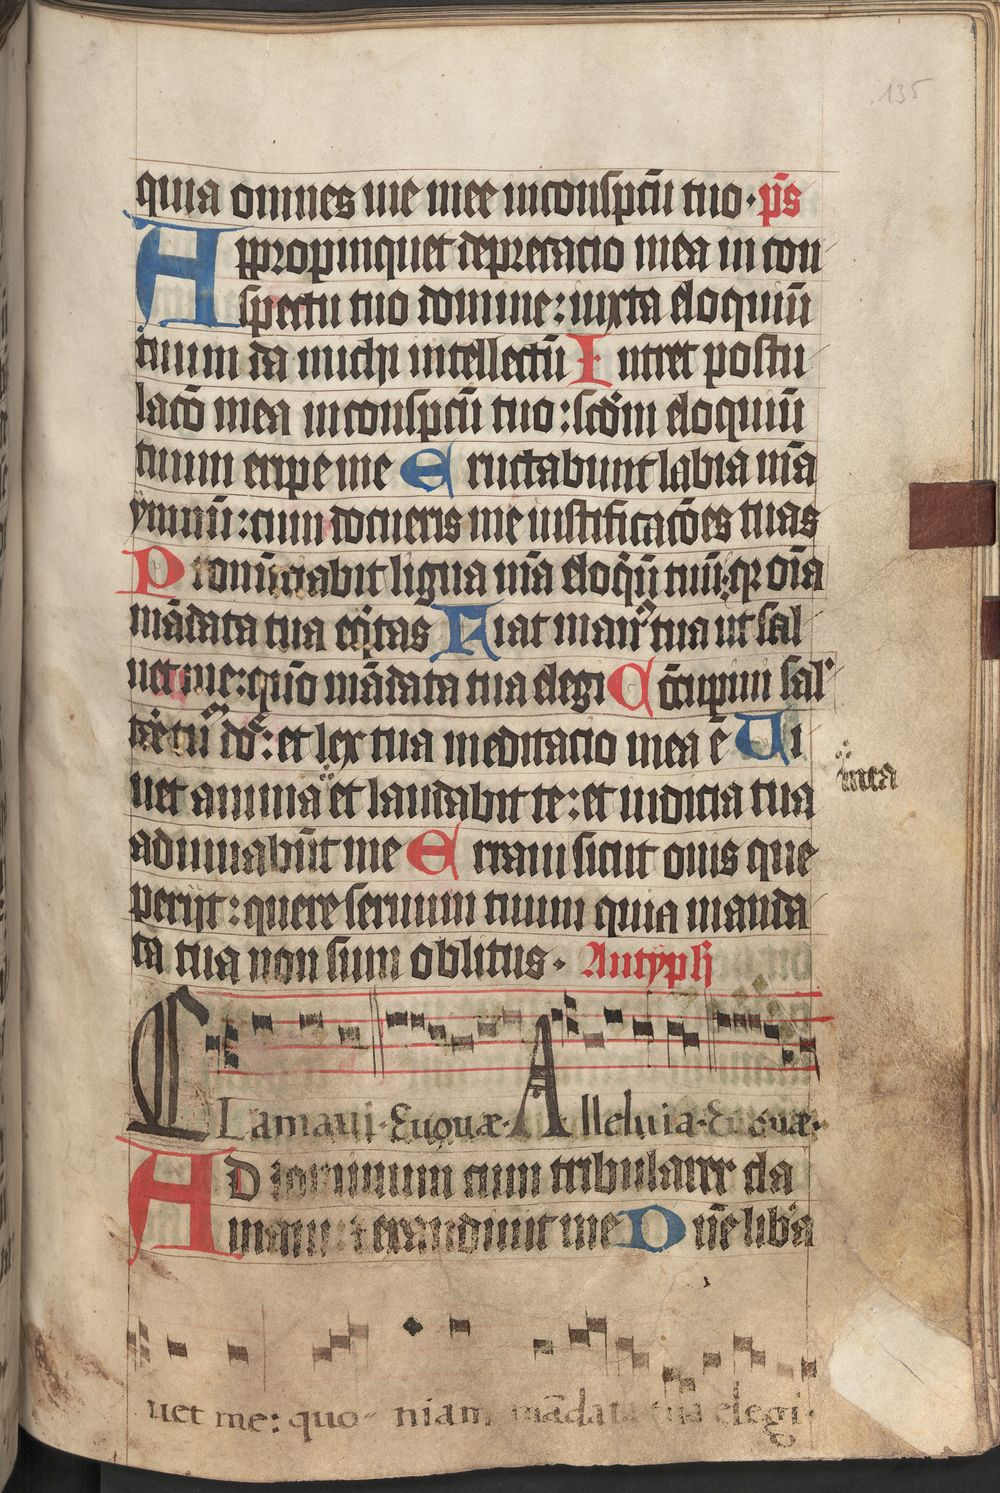 135
quia omnes uie mee inconspc̄tu tuo· ps̄
Appropinquet deprecacio mea in con
spectu tuo domine: iuxta eloquiū
tuum da michi intellectū Intret postu
lacō mea inconspc̄tu tuo: scd̄m eloquiū
tuum eripe me Eructabunt labia m̄a
ymnū: cum docueris me iustificacōes tuas
Pronūciabit ligua m̄a eloq̄ū tuū: qꝛ oīa
mādata tua eq̄tas Fiat man tua ut sal
uet me: quō mādata tua elegi Cōcupiui sal
tē tuū dn̄e: et lex tua meditacio mea ē Ui
uet anima et laudabit te: et iudicia tua
mea
adiuuabūt me Erraui sicut ouis que
perijt: quere seruum tuum quia manda
ta tua non sum oblitus· Antyph
CLamaui· Euouæ· Alleluia· Euouæ·
AD dominum cum tribularer cla
maui et exaudiuit me Dn̄e lib'a
uet me: quo- niam mādata tua elegi·